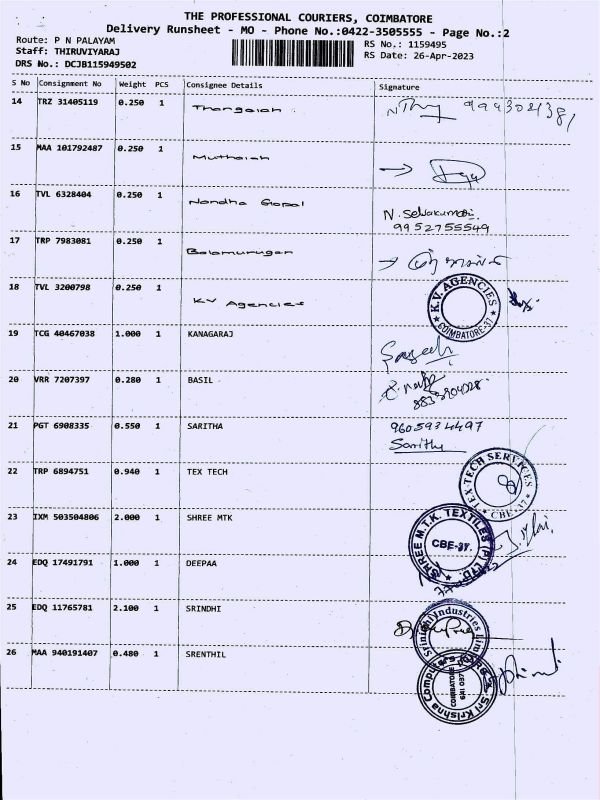 THE PROFESSIONAL COURIERS, COIMBATORE
Delivery Runsheet - MO - Phone No.:0422-3505555 - Page No.:2
Route: P N PALAYAM
Staff: THIRUVIYARAJ
DRS No.: DCJB115949502
RS No.: 1159495
RS Date: 26-Apr-2023
S No Consignment No Weight PCS Consignee Details Signature
14 TRZ 31405119 0.250 1 Thangaiah
15 MAA 101792487 0.250 1 Muthaiah
16 TVL 6328404 0.250 1 Nandha Gopal N. Selvakumar.
9952755549
17 TRP 7983081 0.250 1 Balamurugan
18 TVL 3200798 0.250 1 K.V Agencies K.V. AGENCIES COIMBATORE-37
19 TCG 40467038 1.000 1 KANAGARAJ
20 VRR 7207397 0.280 1 BASIL
21 PGT 6908335 0.550 1 SARITHA 9605934497
Sarithy
22 TRP 6894751 0.940 1 TEX TECH TEX TECH SERVICES CBE-37
23 IXM 503504806 2.000 1 SHREE MTK SHREE M.T.K. TEXTILES (P) LTD. CBE-37.
24 EDQ 17491791 1.000 1 DEEPAA
25 EDQ 11765781 2.100 1 SRINDHI Srinidhi Industries
26 MAA 940191407 0.480 1 SRENTHIL Sri Krishna Computers COIMBATORE